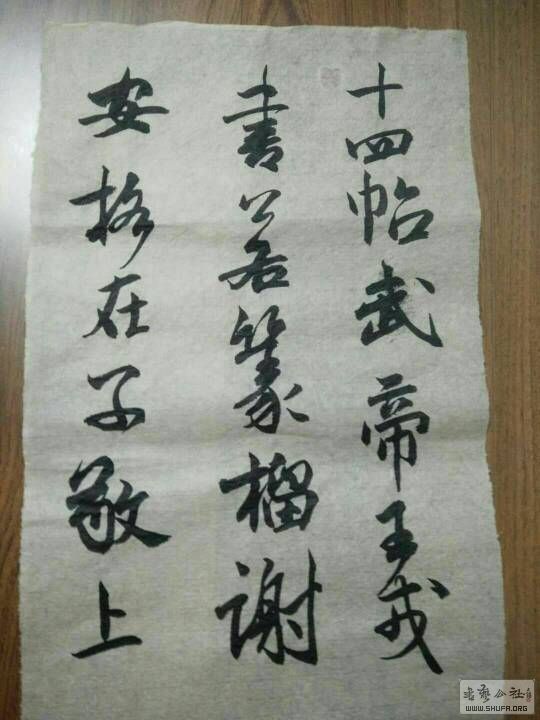 十四帖武帝王戎
書若篆榴谢
安格在子敬上
书艺公社
WWW.SHUFA.ORG